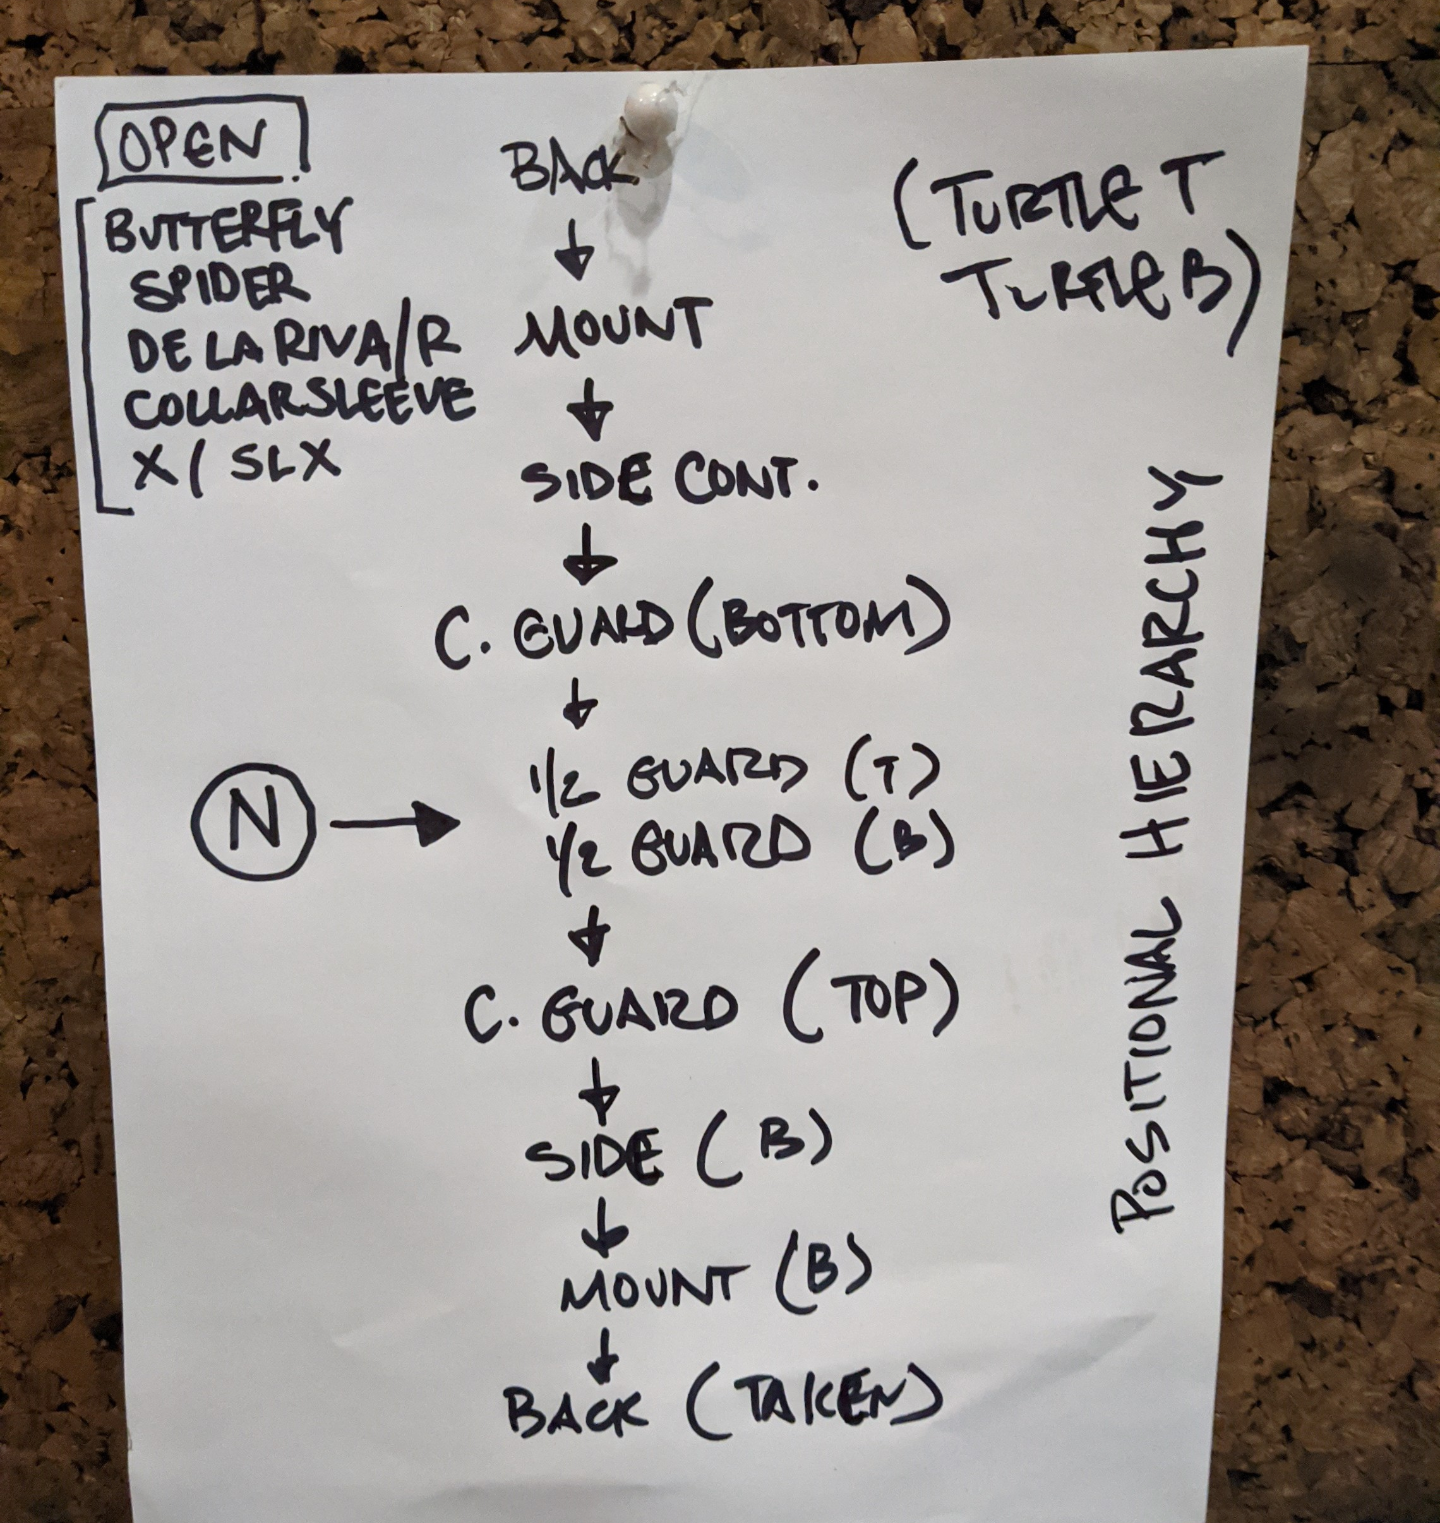 OPEN
BUTTERFLY
SPIDER
DE LA RIVA/R
COLLARSLEEVE
X/SLX
BACK
MOUNT
SIDE CONT.
C. GUARD (BOTTOM)
1/2 GUARD (T)
1/2 GUARD (B)
N
C. GUARD (TOP)
SIDE (B)
MOUNT (B)
BACK (TAKEN)
(TURTLE T
TURTLE B)
POSITIONAL HIERARCHY